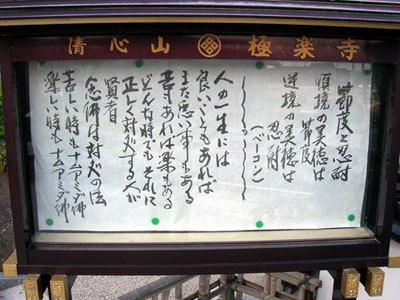 清心山 極楽寺
節度と忍耐
順境の美徳は
節度
逆境の美徳は
忍耐
(ベーコン)
人の一生には
良いこともあれば
また悪い事もある
苦もあれば楽もある
どんな時でもそれに
正しく対応する人が
賢者
念佛は対応の法
苦しい時もナムアミダ佛
楽しい時もナムアミダ佛